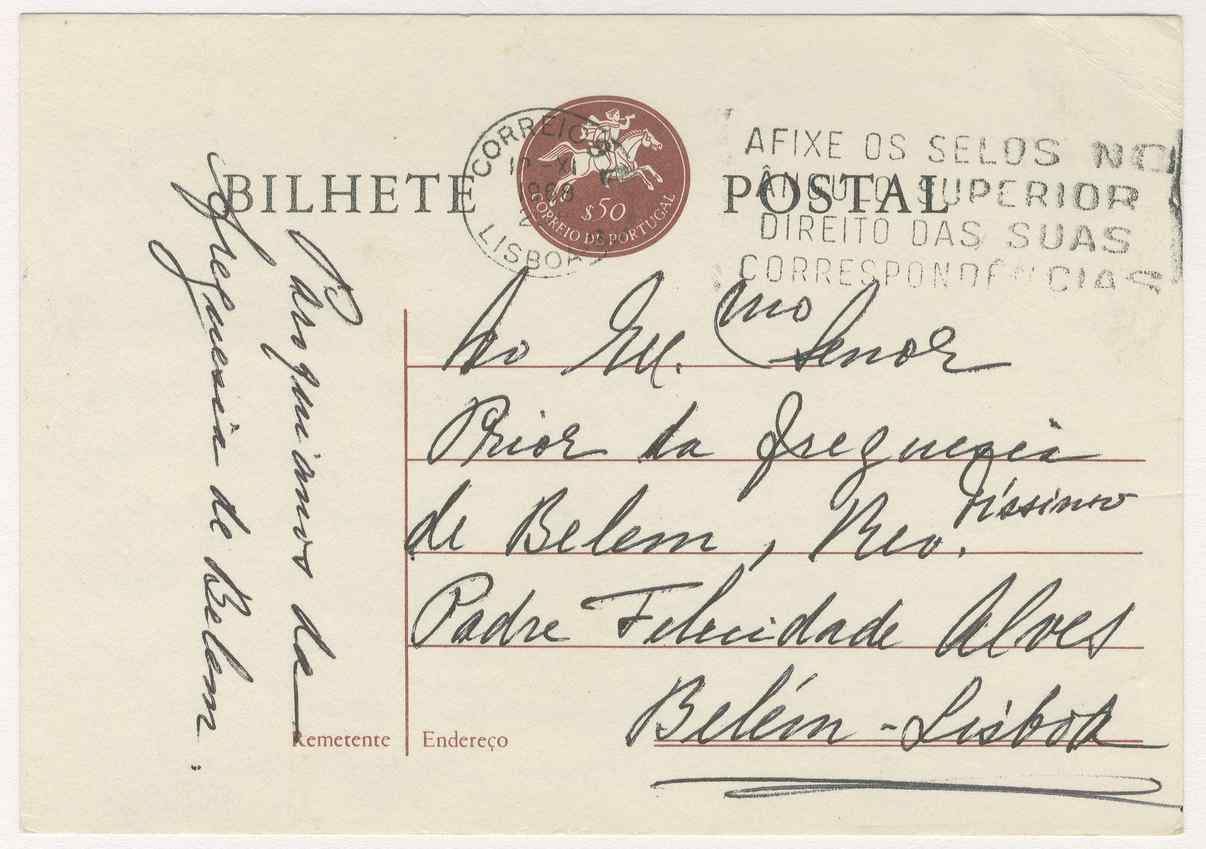 BILHETE POSTAL
CORREIOS
XI
1968
LISBOA
$50
CORREIO DE PORTUGAL
AFIXE OS SELOS NO
ÂNGULO SUPERIOR
DIREITO DAS SUAS
CORRESPONDÊNCIAS
Ao Ex.mo Senor
Prior da Freguesia
de Belem, Rev.díssimo
Padre Felicidade Alves
Belém - Lisboa
Paroquianos da
Freguesia de Belem.
Remetente
Endereço